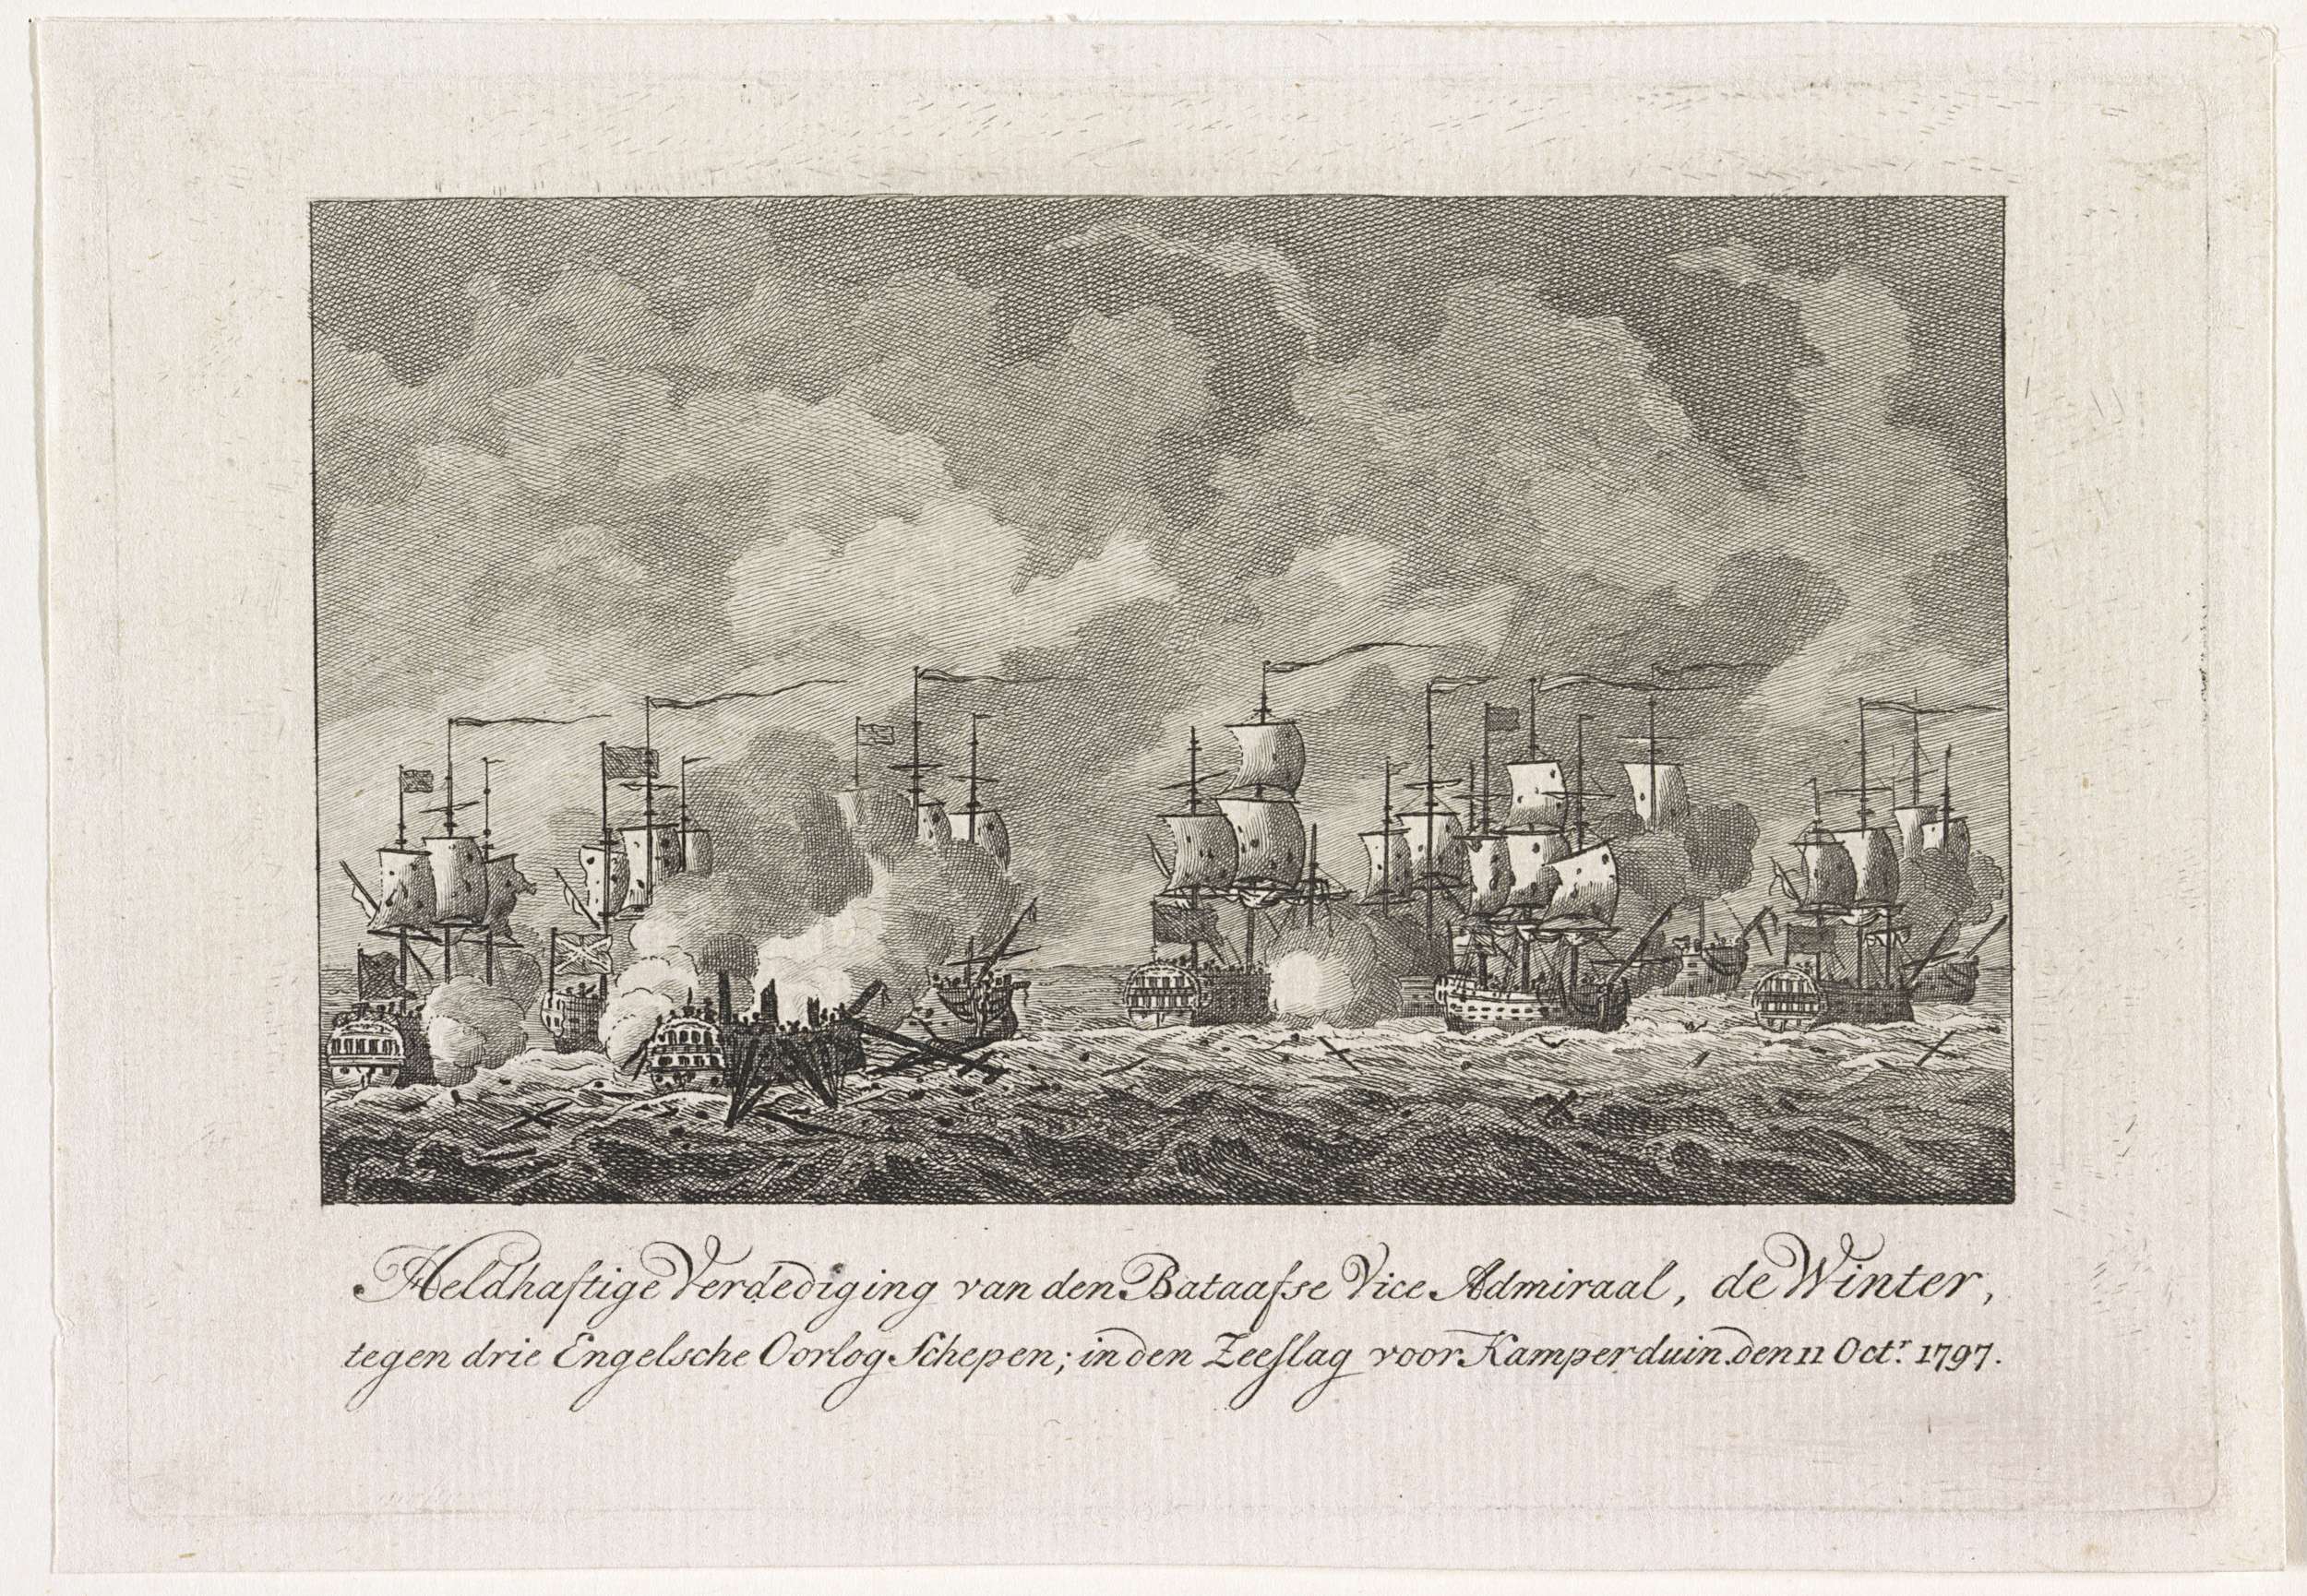 Heldhaftige Verdediging van den Bataafsse Vice Admiraal, de Winter,
tegen drie Engelsche Oorlog Schepen; in den Zeeslag voor Kamperduin. den 11 Octr. 1797.